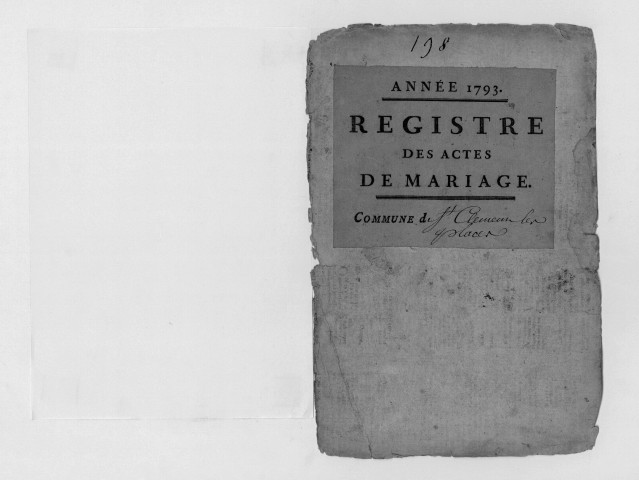 198
ANNÉE 1793.
REGISTRE
DES ACTES
DE MARIAGE.
COMMUNE de St Clement les
places